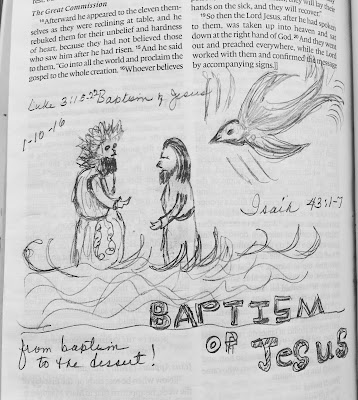 The Great Commission
14Afterward he appeared to the eleven them-
selves as they were reclining at table, and he
rebuked them for their unbelief and hardness
of heart, because they had not believed those
who saw him after he had risen. 15And he said
to them, "Go into all the world and proclaim the
gospel to the whole creation. 16Whoever believes
they will lay their
hands on the sick, and they will recover."
19So then the Lord Jesus, after he had spoken
to them, was taken up into heaven and sat
down at the right hand of God. 20And they went
out and preached everywhere, while the Lord
worked with them and confirmed the message
by accompanying signs.]]
Luke 3:15-22 Baptism of Jesus
1-10-16
Isaih 43:1-7
BAPTISM
OF JESUS
from baptism
to the dessert!